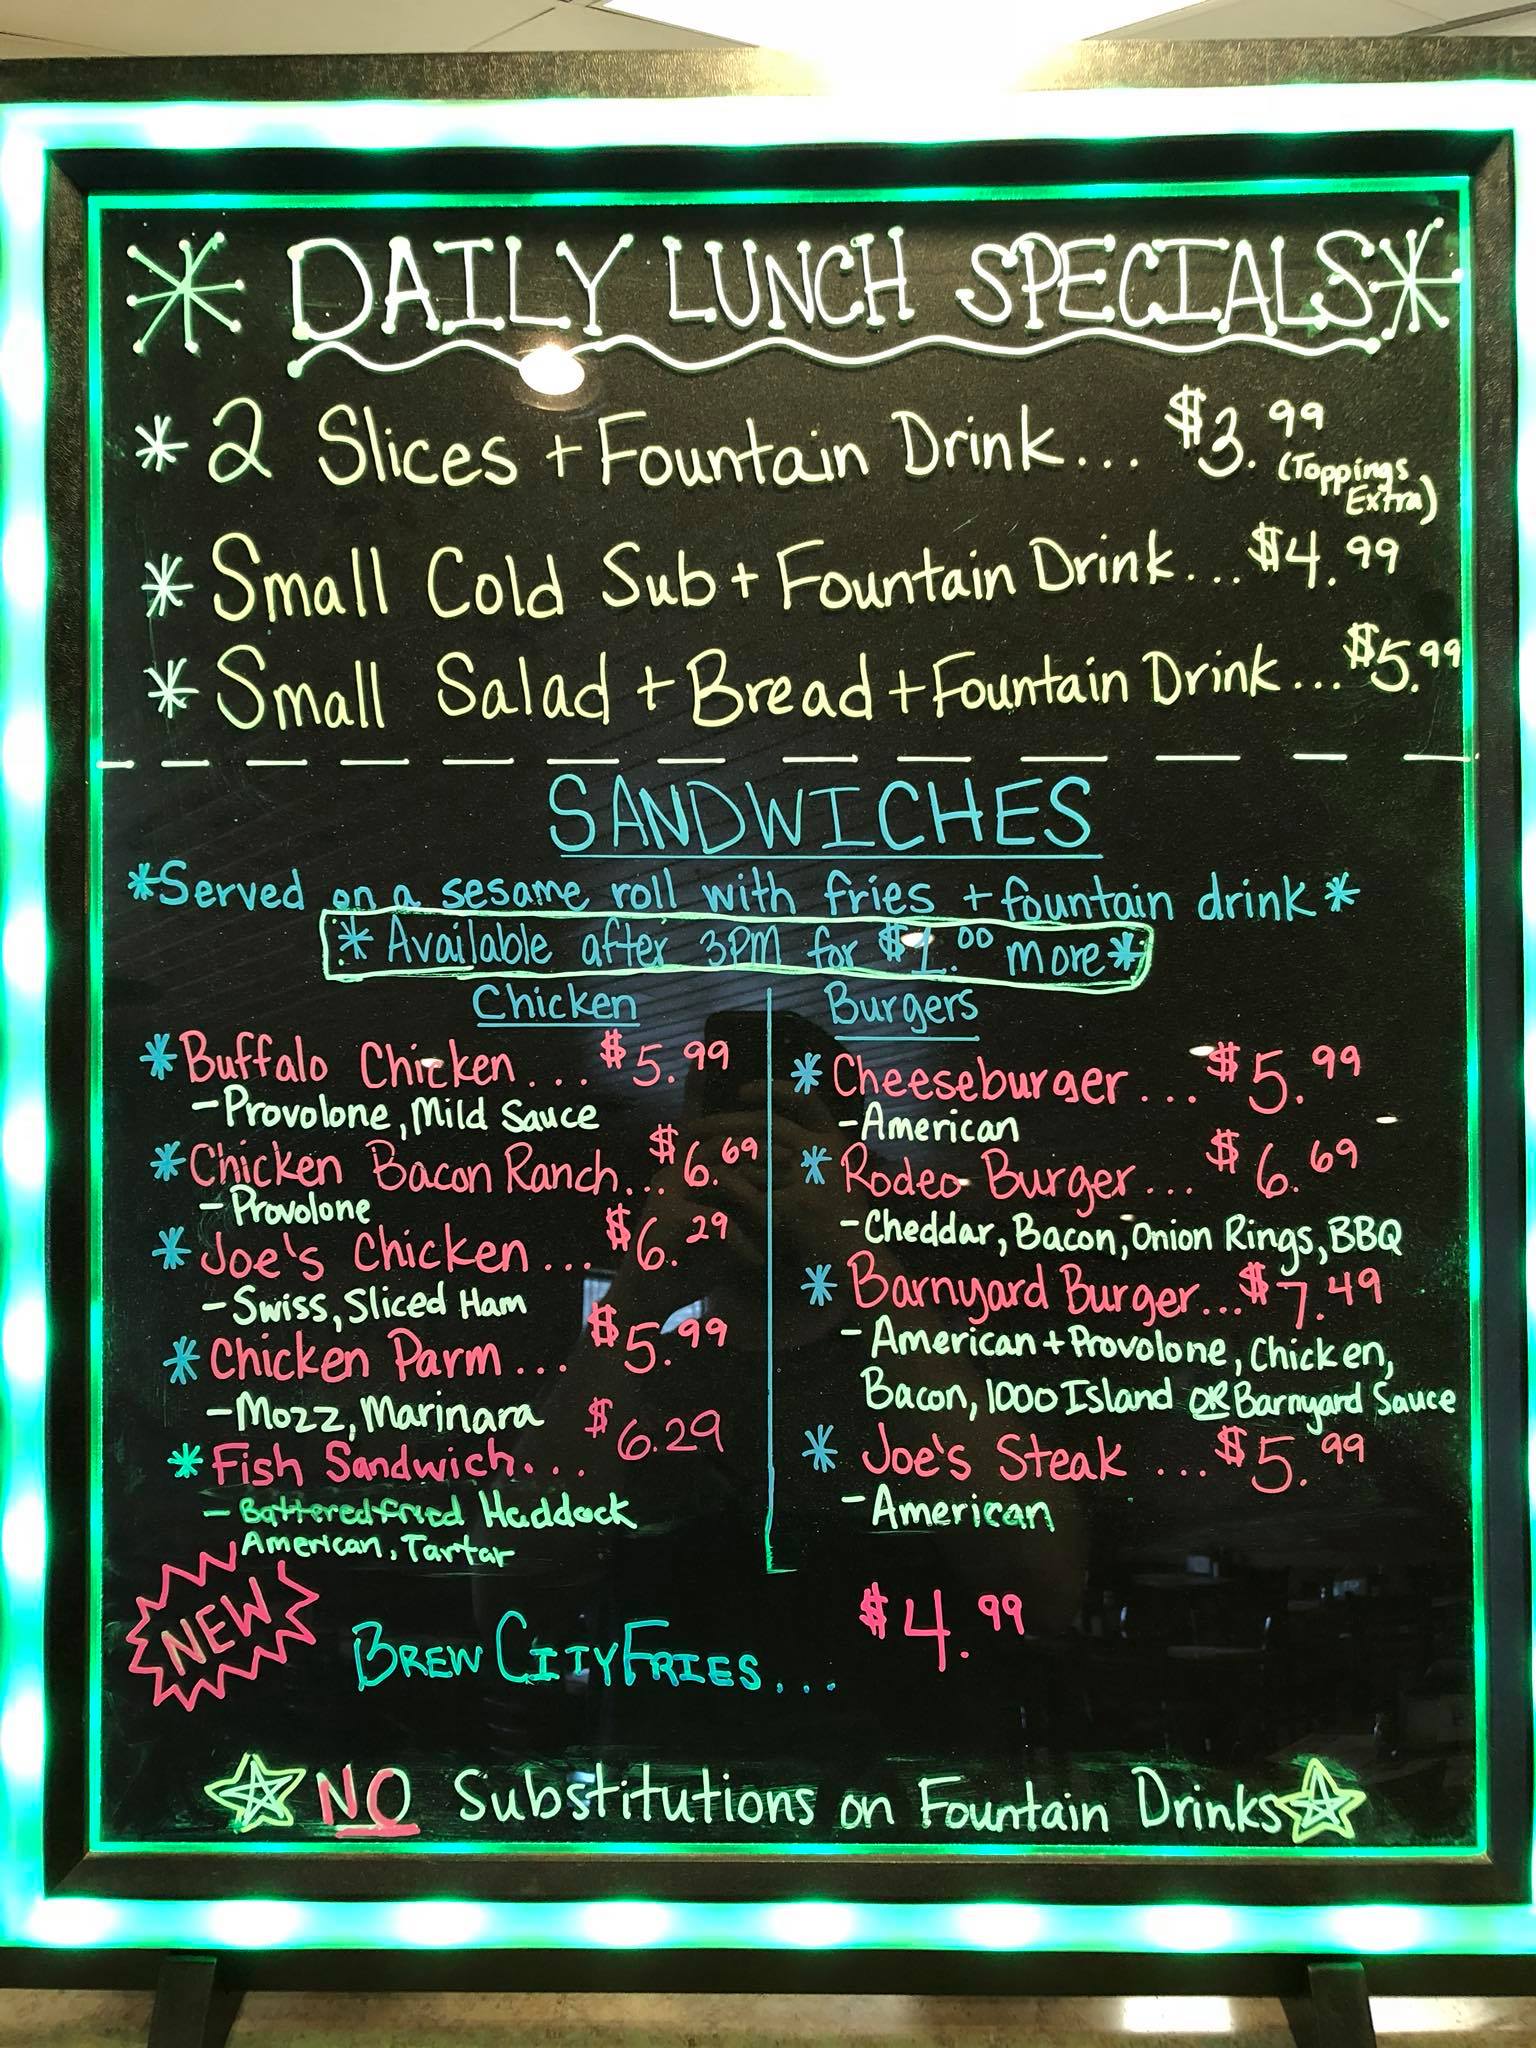 DAILY LUNCH SPECIALS
* 2 Slices + Fountain Drink... $3.99 (Toppings Extra)
* Small Cold Sub + Fountain Drink... $4.99
* Small Salad + Bread + Fountain Drink... $5.99
SANDWICHES
*Served on a sesame roll with fries + fountain drink*
*Available after 3PM for $1.00 more*
Chicken
*Buffalo Chicken... $5.99
-Provolone, Mild Sauce
*Chicken Bacon Ranch... $6.69
-Provolone
*Joe's Chicken... $6.29
-Swiss, Sliced Ham
*Chicken Parm... $5.99
-Mozz, Marinara
*Fish Sandwich... $6.29
-Battered Fried Haddock
American, Tartar
Burgers
*Cheeseburger... $5.99
-American
*Rodeo Burger... $6.69
-Cheddar, Bacon, Onion Rings, BBQ
*Barnyard Burger... $7.49
-American + Provolone, Chicken,
Bacon, 1000 Island OR Barnyard Sauce
*Joe's Steak... $5.99
-American
NEW
BREW CITY FRIES... $4.99
NO Substitutions on Fountain Drinks